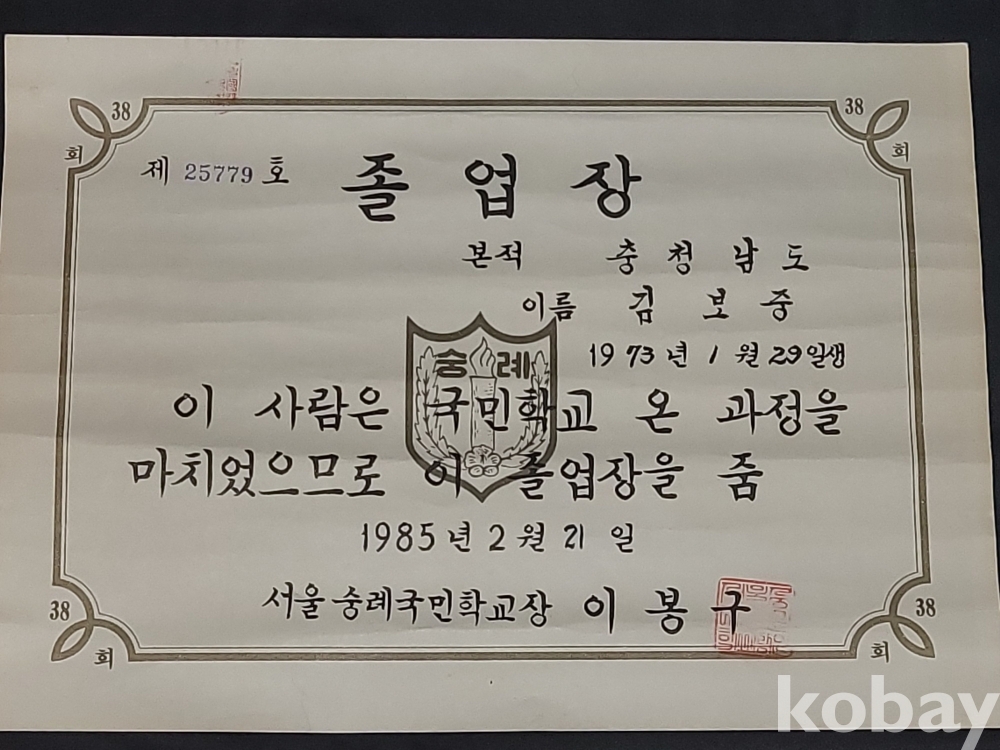 38 38
회 회
제 25779 호
졸업장
본적 충청남도
이름 김보중
1973년 1월 29일생
숭례
이 사람은 국민학교 온 과정을
마치었으므로 이 졸업장을 줌
1985년 2월 21일
서울숭례국민학교장 이봉구
38 38
회 회
kobay